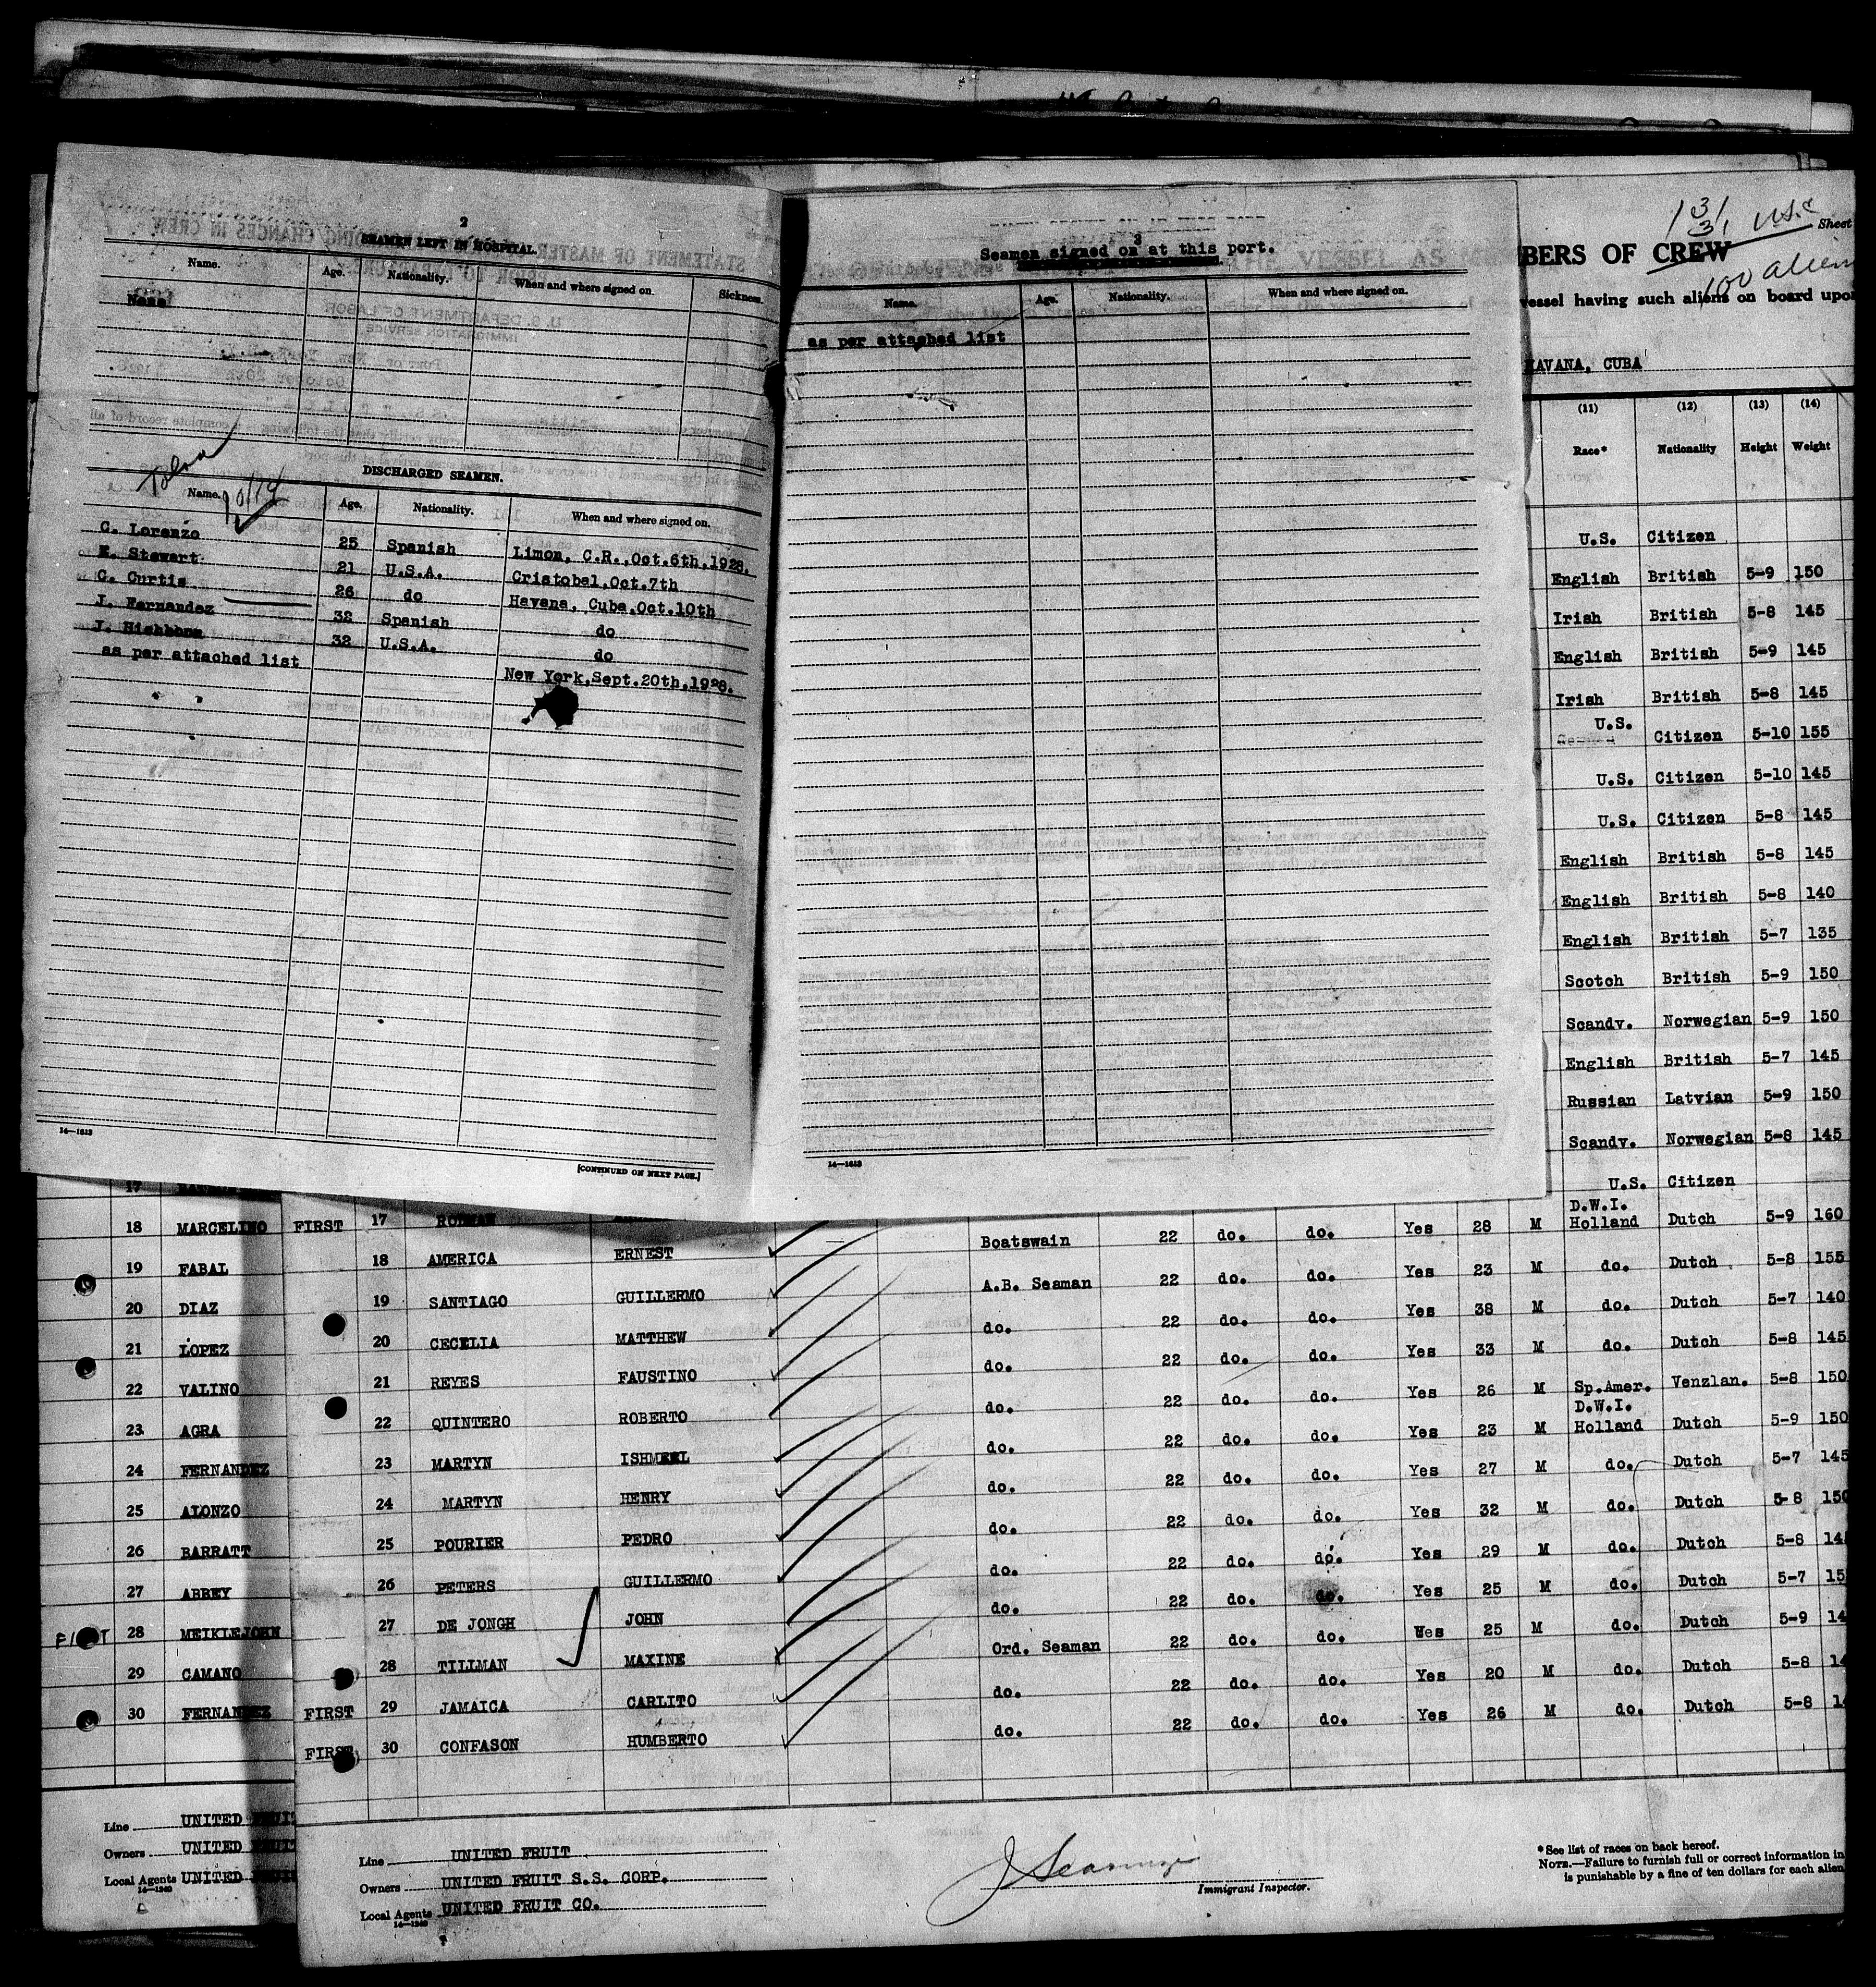 2
SEAMEN LEFT IN HOSPITAL
Name. Age. Nationality. When and where signed on. Sickness.
None
DISCHARGED SEAMEN.
Toloa
10/14
Name. Age. Nationality. When and where signed on.
C. Lorenzo 25 Spanish Limon, C.R.,Oct.6th,1928.
E. Stewart 21 U.S.A. Cristobal,Oct.7th
C. Curtis 26 do Havana, Cuba,Oct.10th
J. Fernandez 32 Spanish do
J. Hishbonn 32 U.S.A. do
as per attached list New York,Sept.20th,1928.
14—1613
[CONTINUED ON NEXT PAGE.]
3
Seamen signed on at this port.
Name. Age. Nationality. When and where signed on.
as per attached list
14—1613
131 U.S.C
31
Sheet
BERS OF CREW
100 alien
vessel having such aliens on board upon
HAVANA, CUBA
(11) (12) (13) (14)
Race* Nationality Height Weight
U.S. Citizen
English British 5-9 150
Irish British 5-8 145
English British 5-9 145
Irish British 5-8 145
U.S. Citizen 5-10 155
U.S. Citizen 5-10 145
U.S. Citizen 5-8 145
English British 5-8 145
English British 5-8 140
English British 5-7 135
Scotch British 5-9 150
Scandv. Norwegian 5-9 150
English British 5-7 145
Russian Latvian 5-9 150
Scandv. Norwegian 5-8 145
U.S. Citizen
17
18 MARCELINO
19 FABAL
20 DIAZ
21 LOPEZ
22 VALINO
23 AGRA
24 FERNANDEZ
25 ALONZO
26 BARRATT
27 ABBEY
28 MEIKLEJOHN
29 CAMANO
30 FERNANDEZ
Line UNITED FRUIT
Owners UNITED FRUIT
Local Agents UNITED FRUIT
14—1240
FIRST 17 RODMAN
18 AMERICA ERNEST Boatswain 22 do. do. Yes 28 M D.W.I. Holland Dutch 5-9 160
19 SANTIAGO GUILLERMO A.B. Seaman 22 do. do. Yes 23 M do. Dutch 5-8 155
20 CECELIA MATTHEW do. 22 do. do. Yes 38 M do. Dutch 5-7 140
21 REYES FAUSTINO do. 22 do. do. Yes 33 M do. Dutch 5-8 145
22 QUINTERO ROBERTO do. 22 do. do. Yes 26 M Sp.Amer. Venzlan. 5-8 150
23 MARTYN ISHMEEL do. 22 do. do. Yes 23 M D.W.I. Holland Dutch 5-9 150
24 MARTYN HENRY do. 22 do. do. Yes 27 M do. Dutch 5-7 145
25 POURIER PEDRO do. 22 do. do. Yes 32 M do. Dutch 5-8 150
26 PETERS GUILLERMO do. 22 do. do. Yes 29 M do. Dutch 5-8 14
27 DE JONGH JOHN do. 22 do. do. Yes 25 M do. Dutch 5-7 15
28 TILLMAN MAXINE Ord. Seaman 22 do. do. Yes 25 M do. Dutch 5-9 14
FIRST 29 JAMAICA CARLITO do. 22 do. do. Yes 20 M do. Dutch 5-8 14
FIRST 30 CONFASON HUMBERTO do. 22 do. do. Yes 26 M do. Dutch 5-8 1
Line UNITED FRUIT
Owners UNITED FRUIT S.S. CORP.
Local Agents UNITED FRUIT CO.
14—1240
Immigrant Inspector.
*See list of races on back hereof.
NOTE.—Failure to furnish full or correct information in
is punishable by a fine of ten dollars for each alien